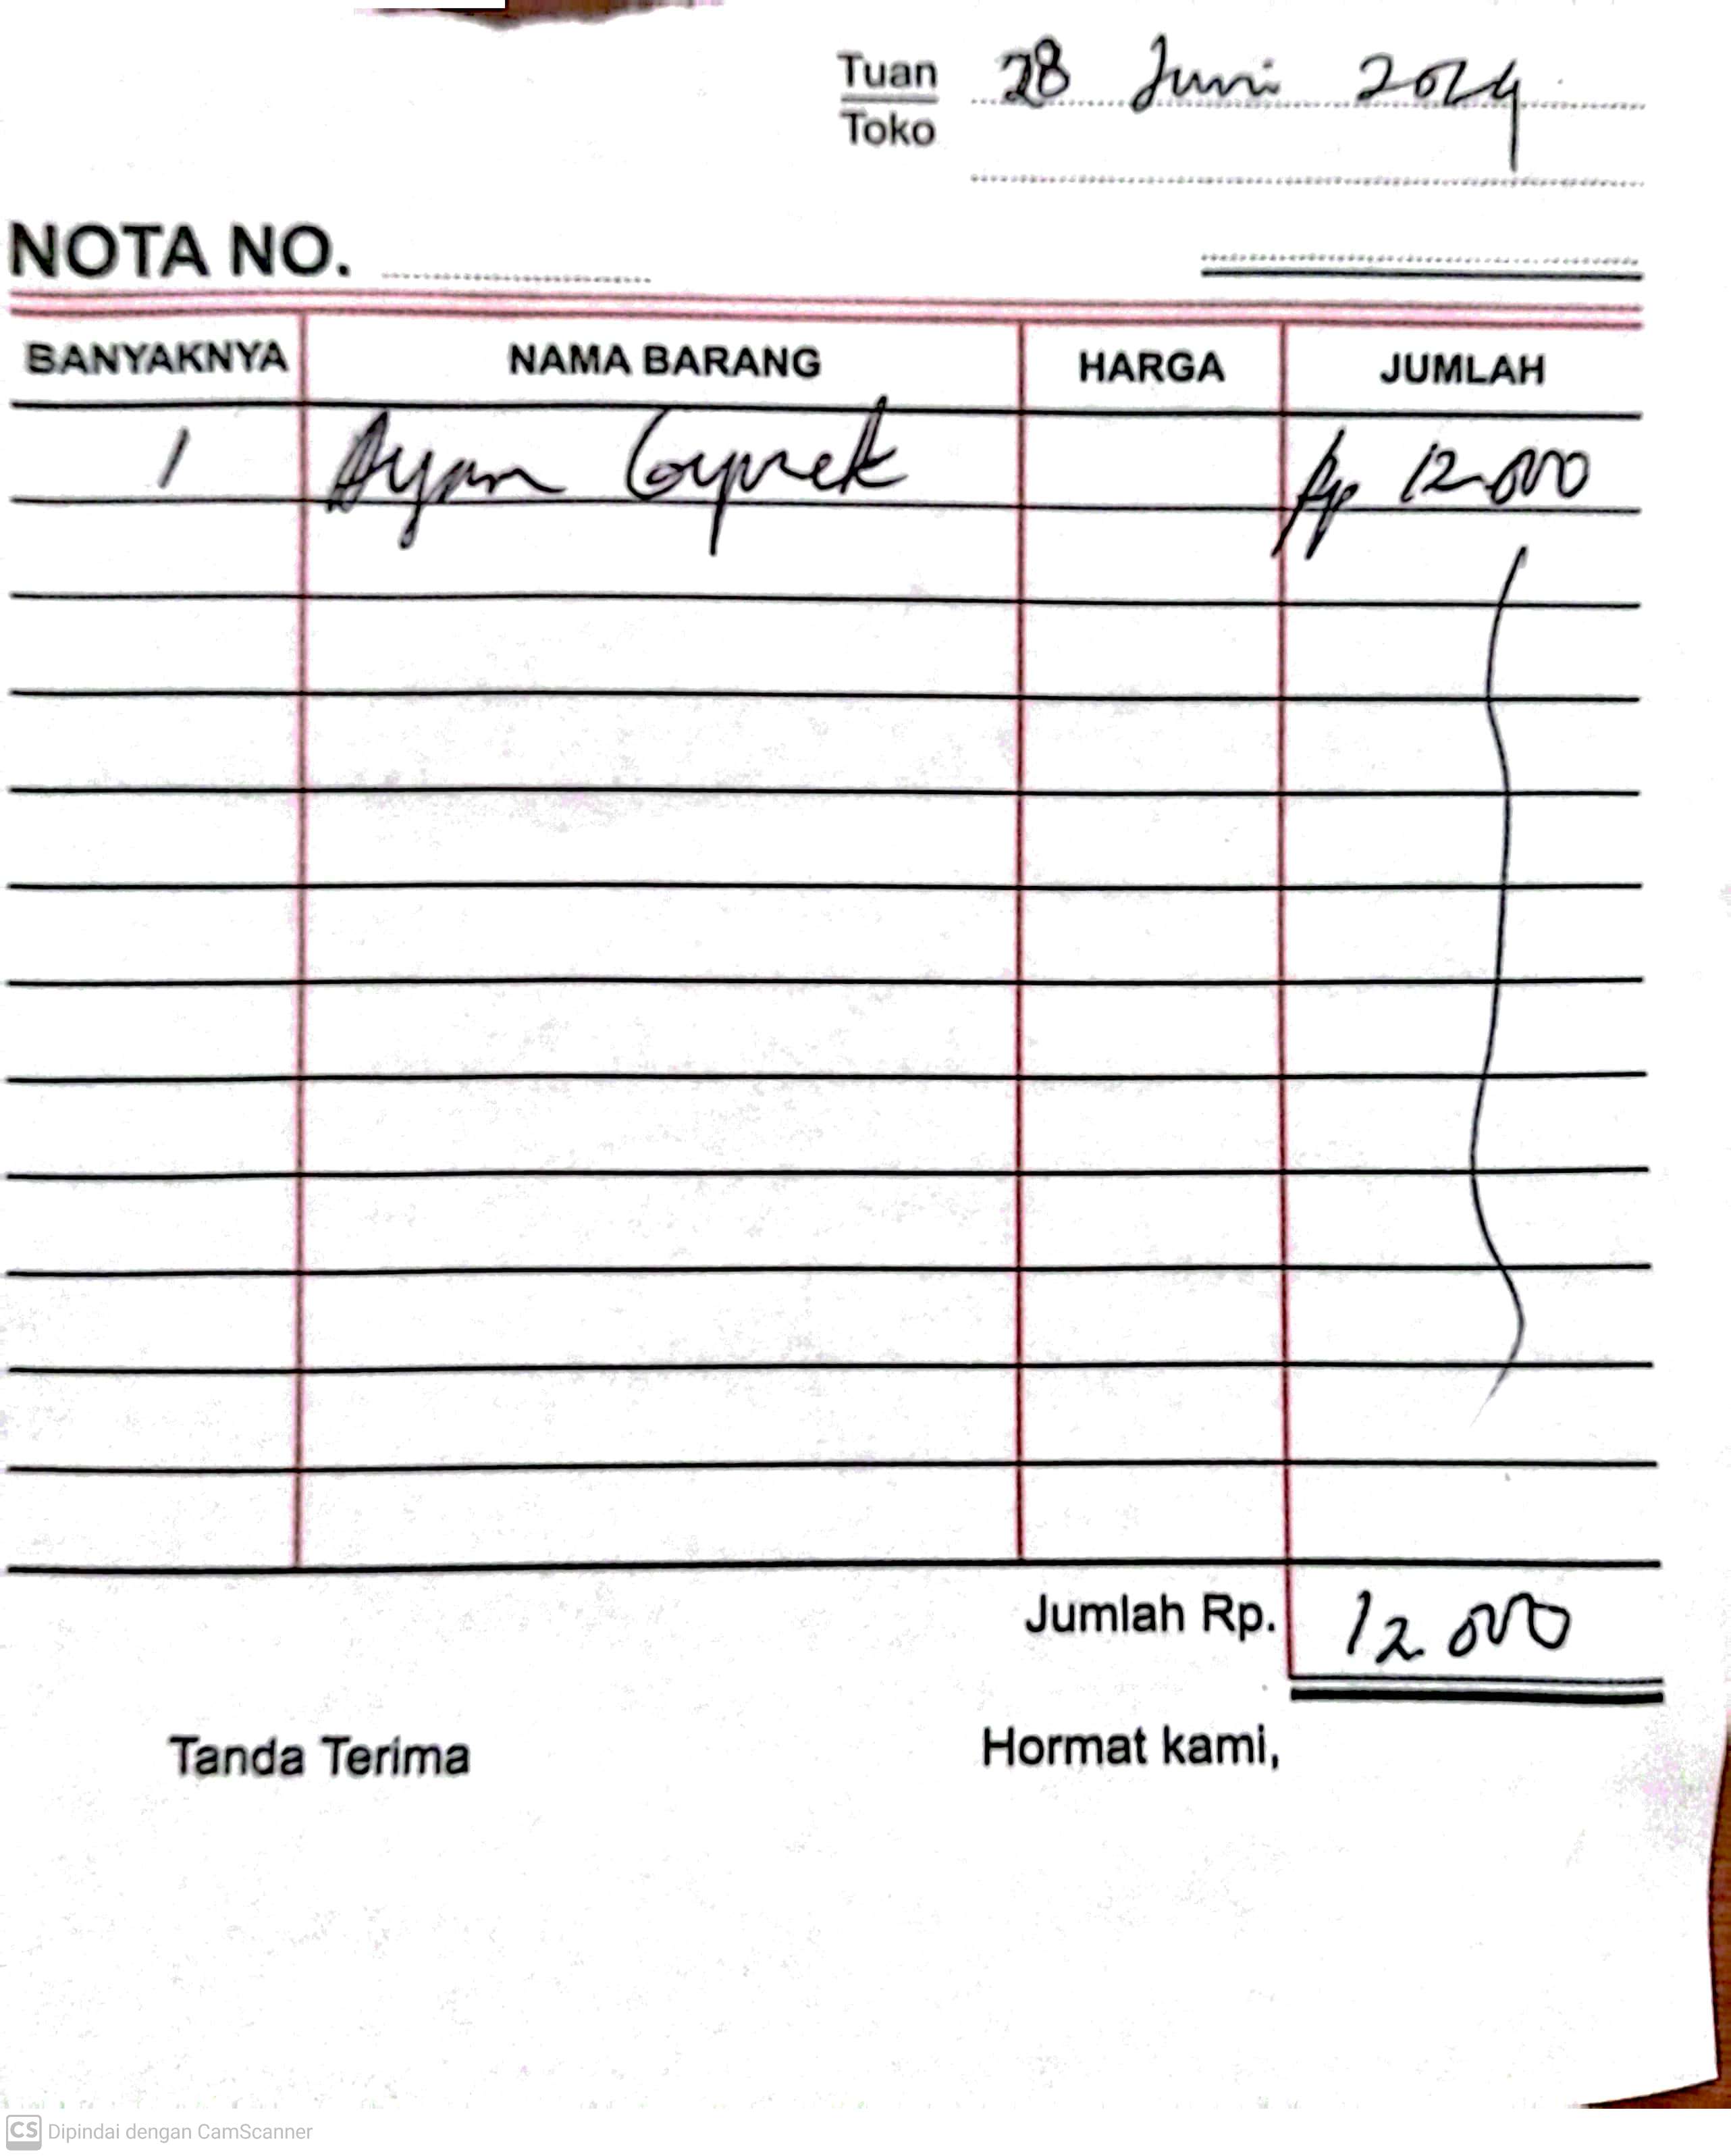 Tuan 28 Juni 2024
Toko
NOTA NO.
BANYAKNYA NAMA BARANG HARGA JUMLAH
1 Ayam Geprek Rp 12.000
Jumlah Rp. 12.000
Tanda Terima Hormat kami,
CS Dipindai dengan CamScanner